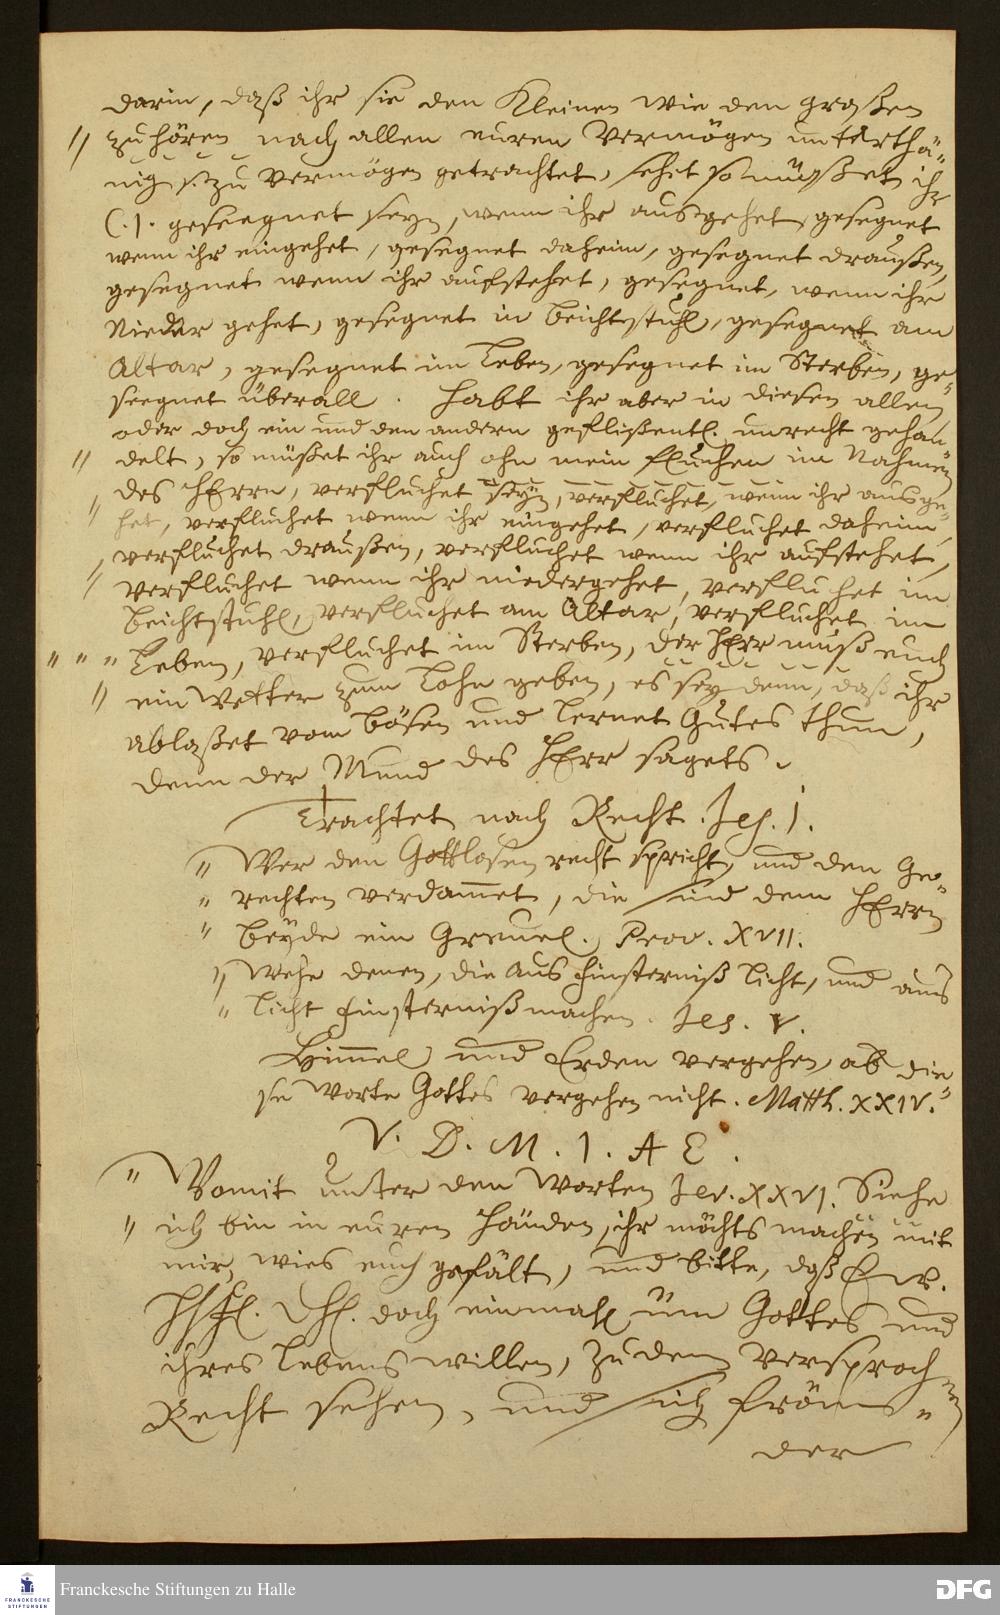 darin, daß ihr sie den Kleinen wie den großen
" zu hören nach allen euren Vermögen unterthä-
nig zu vermögen getrachtet, sehet so müßet ihr
(.). geseegnet seyn, wenn ihr ausgehet, gesegnet
wenn ihr eingehet, gesegnet daheim, gesegnet draußen,
gesegnet wenn ihr aufstehet, gesegnet, wenn ihr
Nieder gehet, gesegnet in Beichtstuhl, gesegnet am
Altar, gesegnet im Leben, gesegnet im Sterben, ge-
seegnet überall. Habt ihr aber in diesen allen
oder doch ein und den andern geflißentl. unrecht gehan-
" delt, so müßet ihr auch ohn mein fluchen im Nahmen
" des HErrn, verfluchet seyn, verfluchet, wenn ihr ausge-
" het, verfluchet wenn ihr eingehet, verfluchet daheim,
" verfluchet draußen, verfluchet wenn ihr aufstehet,
" verfluchet wenn ihr niedergehet, verfluchet im
Beichtstuhl, verfluchet am Altar, verfluchet im
" " " Leben, verfluchet im Sterben, der HErr muß euch
" ein Wetter zum Lohn geben, es sey denn, daß ihr
ablaßet vom bösen und lernet Gutes thun,
denn der Mund des HErr sagets.
Trachtet nach Recht. Jes. 1.
" Wer den Gottlosen recht spricht, und den Ge-
" rechten verdam̅et, die sind dem HErrn
" beyde ein Greuel. Prov. XVII.
" Wehe denen, die aus Finsterniß Licht, und aus
" Licht Finsterniß machen. Jes. V.
Him̅el und Erden vergehen, ab die-
se Worte Gottes vergehen nicht. Matth. XXIV.
V. D. M. I. A E.
" Womit unter den Worten Jer. XXVI. Siehe
" ich bin in euren Händen, ihr möchts machen mit
mir, wies euch gefält, und bitte, daß Ew.
doch einmahl üm Gottes und
ihres Lebens willen, zu dem versprochnen
Recht sehen, und sich fröm-
der
Franckesche Stiftungen zu Halle
FRANCKESCHE
STIFTUNGEN
DFG